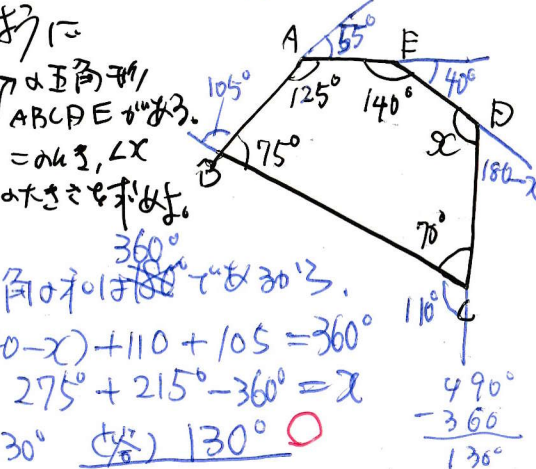 ように
の五角形
ABCDEがある。
このとき,∠x
の大きさを求めよ。
A
55°
E
40°
125°
140°
105°
B
75°
x
D
180-x
70°
110°
C
360°
角の和は180°であるから,
0-x)+110+105=360°
275°+215°-360°=x
30° (答) 130°
490°
-360
130°